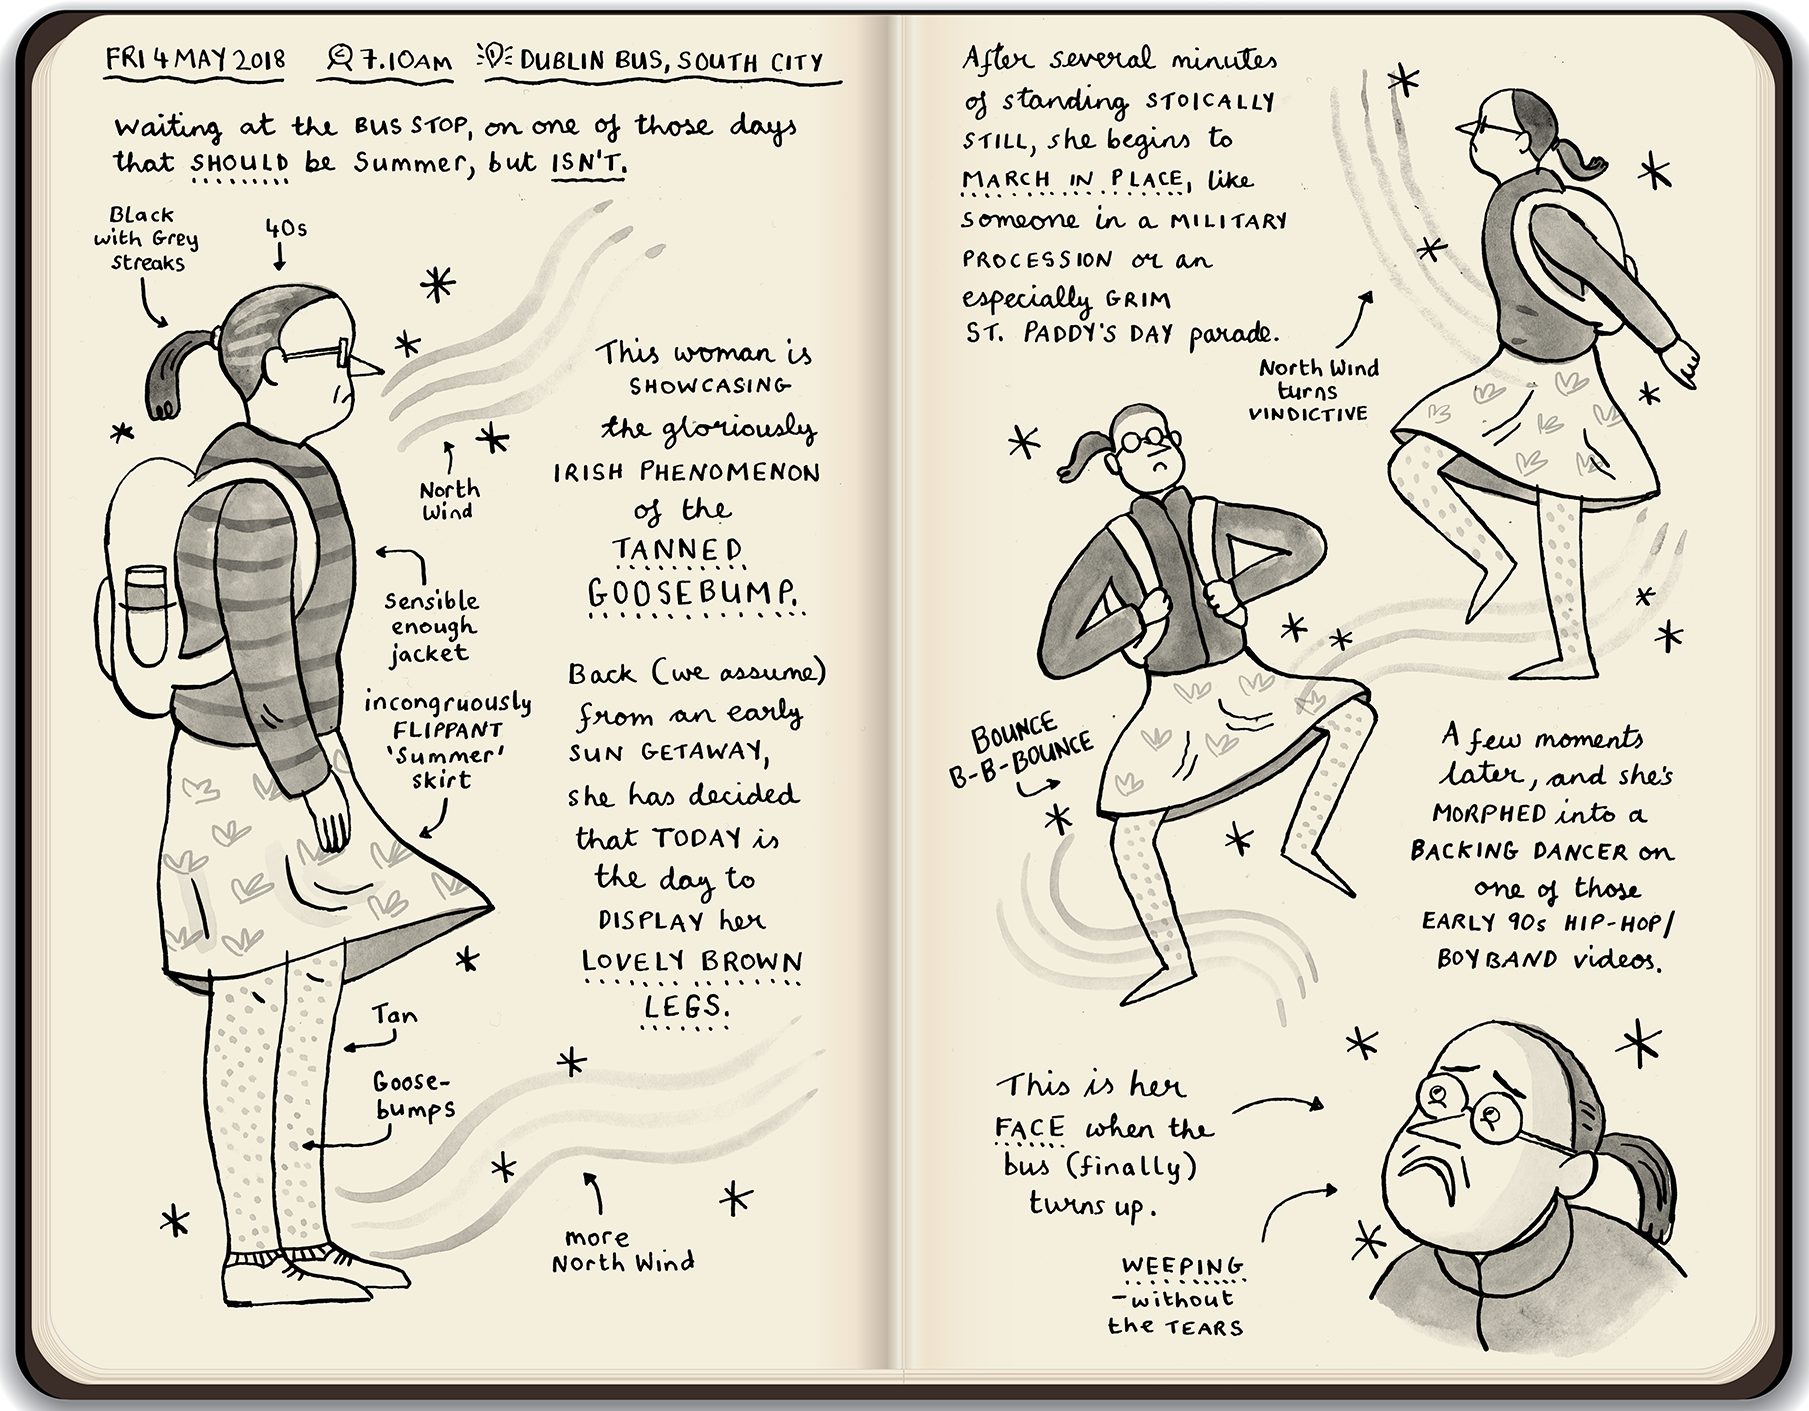 FRI 4 MAY 2018 7.10AM DUBLIN BUS, SOUTH CITY
Waiting at the BUS STOP, on one of those days
that SHOULD be Summer, but ISN'T.
Black
with Grey
streaks
40s
North
Wind
Sensible
enough
jacket
incongruously
FLIPPANT
'Summer'
skirt
Tan
Goose-
bumps
more
North Wind
This woman is
SHOWCASING
the gloriously
IRISH PHENOMENON
of the
TANNED
GOOSEBUMP.
Back (we assume)
from an early
SUN GETAWAY,
she has decided
that TODAY is
the day to
DISPLAY her
LOVELY BROWN
LEGS.
After several minutes
of standing STOICALLY
STILL, she begins to
MARCH IN PLACE, like
someone in a MILITARY
PROCESSION or an
especially GRIM
ST. PADDY'S DAY parade.
North Wind
turns
VINDICTIVE
BOUNCE
B-B-BOUNCE
A few moments
later, and she's
MORPHED into a
BACKING DANCER on
one of those
EARLY 90s HIP-HOP/
BOYBAND videos.
This is her
FACE when the
bus (finally)
turns up.
WEEPING
-without
the TEARS